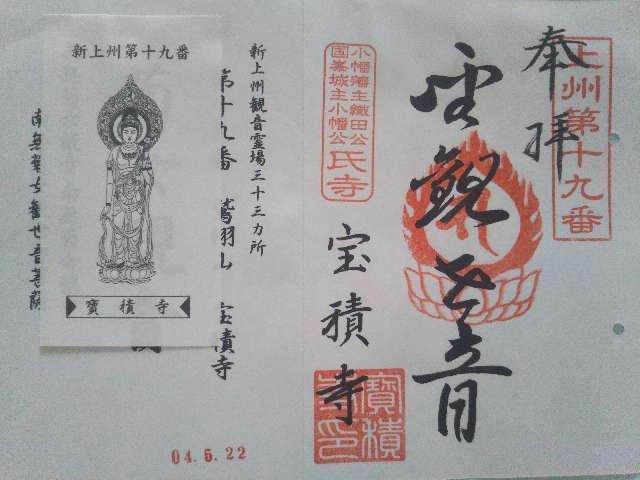 上州第十九番
奉拝
聖観世音
小幡藩主織田公
国峯城主小幡公
氏寺
宝積寺
寶積
寺印
新上州観音霊場三十三カ所
第十九番 鷲翎山 宝積寺
南無聖大観世音菩薩
新上州第十九番
寶積寺
04.5.22